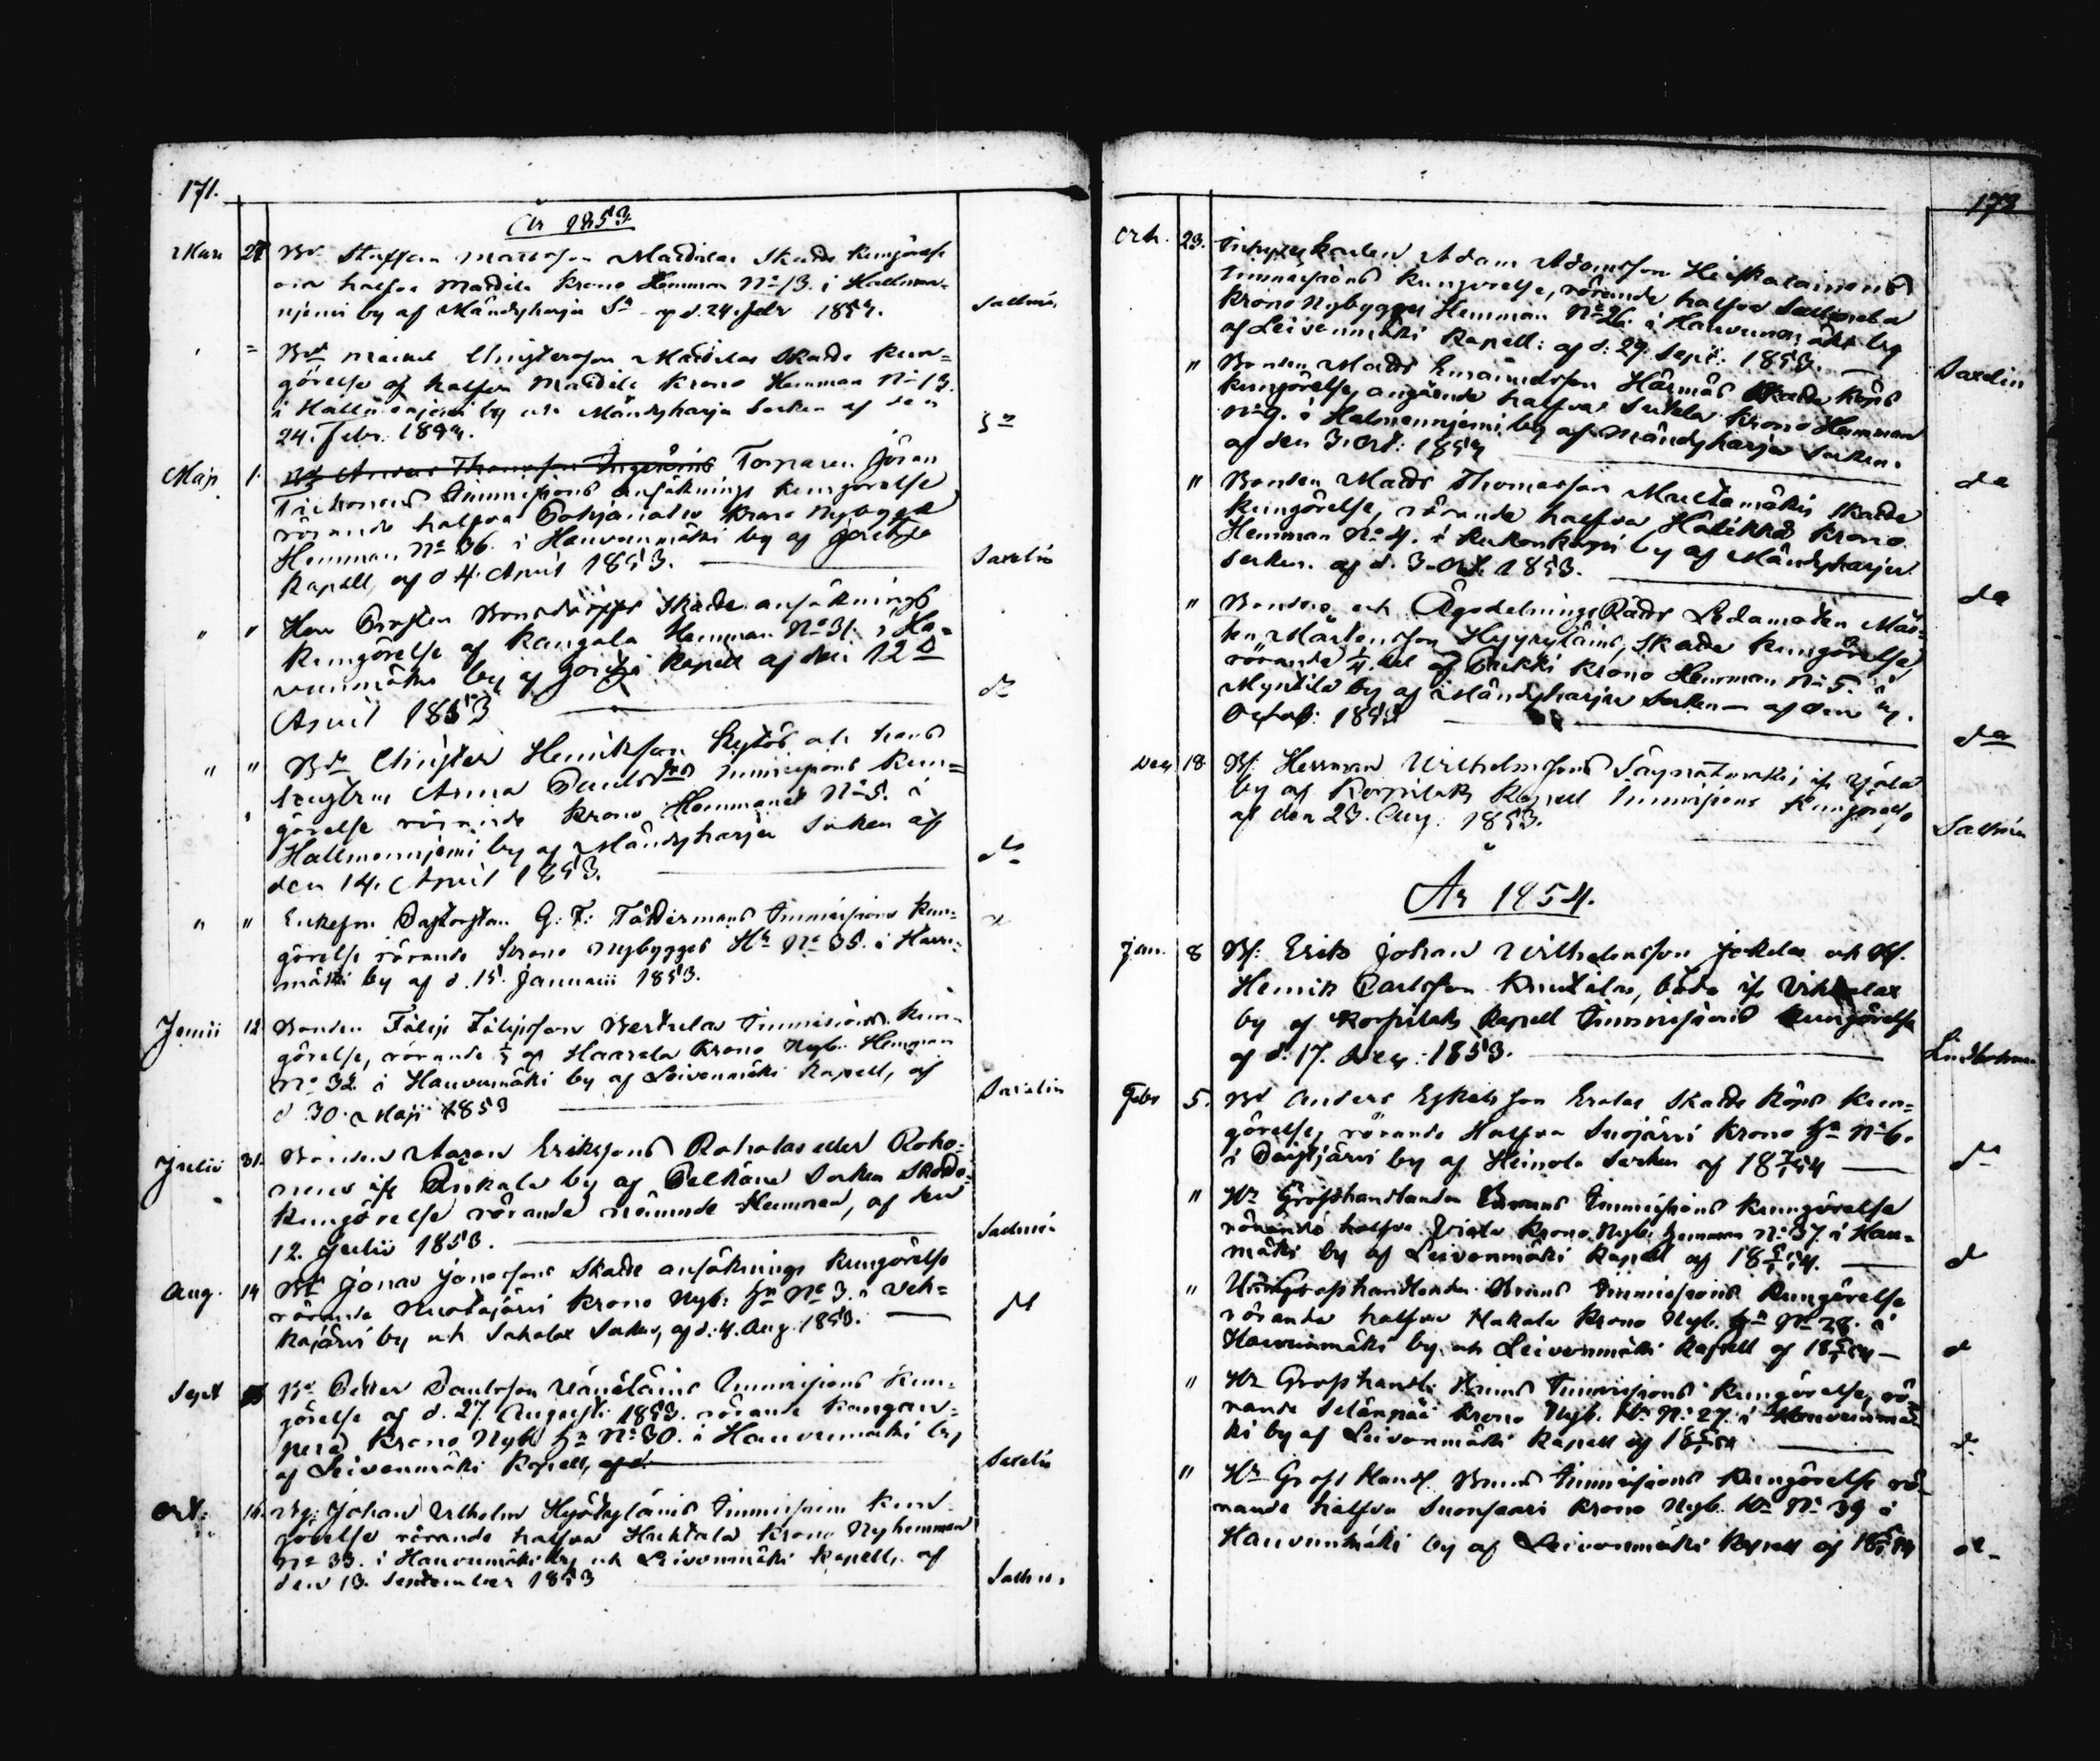 171.
År 1853.
Mars 27 Bd. Staffan Mattsson Mattilas Skatte kungörelse
om halfva Mattila Krono Hemman No 13. i Hallmen-
njemi by af Mändyharju Sn af d. 24. febr 1853. Sallmén
" = Bdn Michel Christersson Mattilas Skatte kun=
görelse af halfva Mattila Krono Hemman No 13.
i Hallmenjemi by och Mändyharju Socken af den
24. febr. 1853. do
Maji 1. Torparen Jöran
Tichonens Immissions ansöknings kungörelse
rörande halfva Pohjanalus Krono Nybygge
Hemman No 36. i Hauvunmäki by af Joutsa
Kapell, af d 4. April 1853. Saxelin
" " Herr Prosten Bonsdorffs Skatte ansöknings
kungörelse af Kangala Hemman No 31. i Ha=
vunmäki by af Joutsa Kapell af den 12
April 1853 do
" " Bdn Christer Henriksson Kytös och hans
hustrus Anna Paulsdrs Immissions kun=
görelse rörande Krono Hemmanet No 5. i
Hallmennjemi by af Mändyharju Socken af
den 14. April 1853. do
" " Enkefru Pastorskan G: F: Töttermans Immissions kun-
görelse rörande Krono Nybygges Hn No 35. i Havu-
mäki by af d. 15. Januarii 1853.
Junii 12 Bonden Filip Filipsson Bertulas Immissions kun-
görelse, rörande 1/2 af Haarala Krono Nyb. Hemman
No 32 i Hauvunmäki by af Leivonmäki Kapell, af
d 30. Maji 1853 Saxelin
Julii 31. Bonden Aaron Erikssons Roholas eller Roho-
nens ifr Pinkala by af Pelkäne Socken Skatte-
kungörelse rörande nämnde Hemman, af den
12. Julii 1853. Sallmén
Aug. 14 Bdn Jonas Jonassons Skatte ansöknings kungörelse
rörande Mustajärvi Krono Nyb: Hn No 3. i Veh-
kajärvi by och Sahalax Socken, af d. 4. Aug. 1853. do
Sept Bd Petter Paulsson Vänttäins Immissions kun-
görelse af d. 27. Augusti 1853. rörande Kangan-
perä Krono Nyb. Hn No 30. i Hauvunmäki by
af Leivonmäki Kapell, Saxelin
Oct. 16. Johan Wilhelm Hyötyläinens Immission kun-
görelse rörande halfva Huhtala Krono Nyhemman
No 33. i Hauvunmäki by och Leivonmäki Kapell, af
den 13. September 1853 Sallmén
173
Oct. 23. Adam Adamsson Heiskalainens
Immissions kungörelse, rörande halfva
Krono Nybygges Hemman No 26. i Hauvunmäki by
af Leivonmäki Kapell: af d: 29. Sept: 1853. Saxelin
" Bonden Matts Emanuelsson Härmäs Skatte köps
kungörelse, angående halfva Seikla Krono Hemman
No 9. i Halmennjemi by af Mändyharju Socken.
af den 3. Oct: 1853 do
" Bonden Matts Thomasson Multamäkis Skatte
kungörelse, rörande halfva Halikka Krono
Hemman No 4. i Kukonkorpi by af Mändyharju
Socken. af d. 3. Oct. 1853. do
" Bonden och Ägodelnings Rätts Ledamoten Mår-
ten Mårtensson Hyyryläins, Skatte kungörelse,
rörande 1/4 del af Pirkki Krono Hemman No 5. i
Myntilä by af Mändyharju Socken af den
Octob: 1853 do
Dec 18 Bd. Herrman Wilhelmssons Säynätmäki ifr
by af Korpilaks Kapell Immissions kungörelse
af den 23. Aug. 1853. Sallmén
År 1854.
Jan. 8 Bd: Erik Johan Wilhelmsson Jokelas och Bd.
Henrik Carlsson Knutilas, både ifr
by af Korpilaks Kapell Immissions kungörelse
af d. 17. Dec. 1853. Lindholm
Febr 5. Bd Anders Eskelsson Erolas Skatte köps kun=
görelse, rörande Halfva Suojärvi Krono Hn No 6.
i Paistjärvi by af Heinola Socken af 18 54 do
" Hr Grosshandlanden Bruns Immissions kungörelse
rörande halfva Krono Nyb. Hemman No 37. i Hau-
mäki by af Leivonmäki Kapell af 18 54. do
" Grosshandlanden Bruns Immissions Kungörelse
rörande halfva Hakala Krono Nyb. Hn No 28. i
Hauvunmäki by och Leivonmäki Kapell af 18 54 do
" Hr Grosshandl. Bruns Immissions kungörelse, rö-
rande Selänpää Krono Nyb. Hn No 27. i Hauvunmä-
ki by af Leivonmäki Kapell af 18 54 do
" Hr Gross Handl. Bruns Immissions Kungörelse rö-
rande halfva Suonsaari Krono Nyb. Hn No 39 i
Hauvunmäki by af Leivonmäki Kapell af 18 54 do